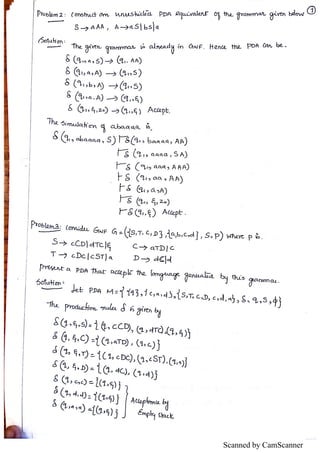 Problem 2: Construct an unrestricted PDA equivalent of the grammar given below
S → aAA, A → aS|bS|a
Solution:
The given grammar is already in GNF. Hence the PDA can be.
δ (q₁, a, S) → (q₁, AA)
δ (q₁, a, A) → (q₁, S)
δ (q₁, b, A) → (q₁, S)
δ (q₁, a, A) → (q₁, ε)
δ (q₁, ε, z₀) → (q₁, ε) Accept.
The simulation of abaaaa is,
δ (q₁, abaaaa, S) ⊢ δ (q₁, baaaa, AA)
⊢ δ (q₁, aaaa, SA)
⊢ δ (q₁, aaa, AAA)
⊢ δ (q₁, aa, AA)
⊢ δ (q₁, a, A)
⊢ δ (q₁, ε, z₀)
⊢ δ (q₁, ε) Accept.
Problem 3: Consider GNF G = ({S, T, C, D}, {a, b, c, d}, S, P) where P is.
S → cCD|dTC|ε C → aTD|c
T → cDC|cST|a D → dC|d
Present a PDA that accepts the language generated by this grammar.
Solution:
Let PDA M = { {q}, {c, a, d}, {S, T, C, D, c, d, a}, δ, q, S, ϕ}
The production rules δ is given by
δ (q, ε, S) = { (q, cCD), (q, dTC) (q, ε)}
δ (q, ε, C) = { (q, aTD), (q, c)}
δ (q, ε, T) = { (q, cDC), (q, cST), (q, a)}
δ (q, ε, D) = { (q, dC), (q, d)}
δ (q, c, c) = {(q, ε)}
δ (q, d, d) = {(q, ε)} Acceptance by
δ (q, a, a) = {(q, ε)} Empty Stack
Scanned by CamScanner